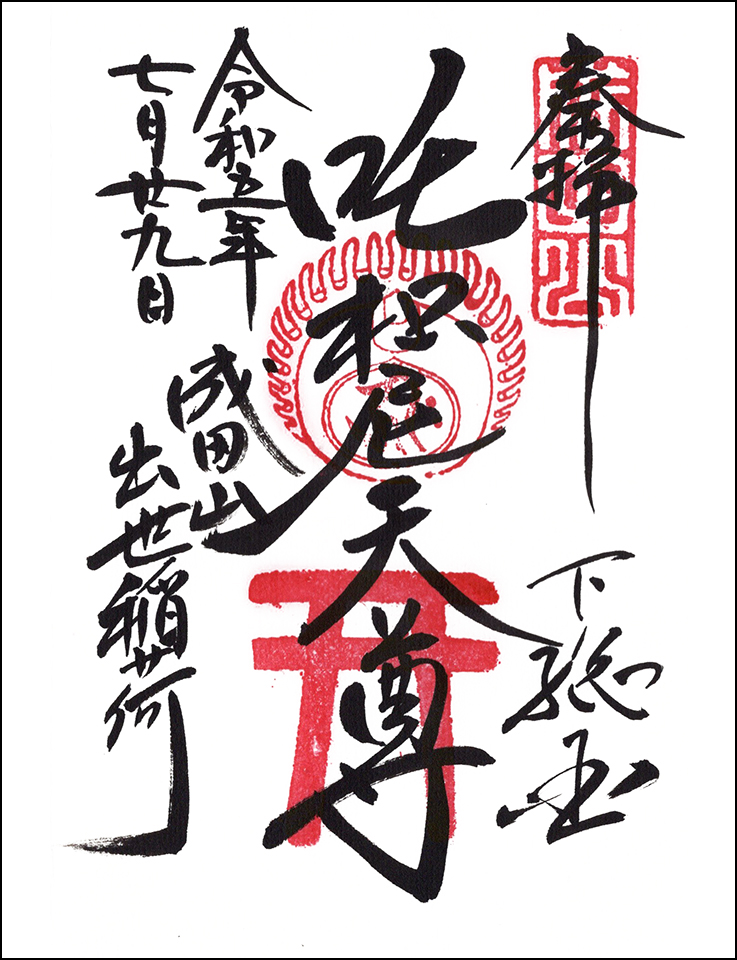 奉拝
下総国
吒枳尼天尊
令和五年
七月廿九日
成田山
出世稲荷